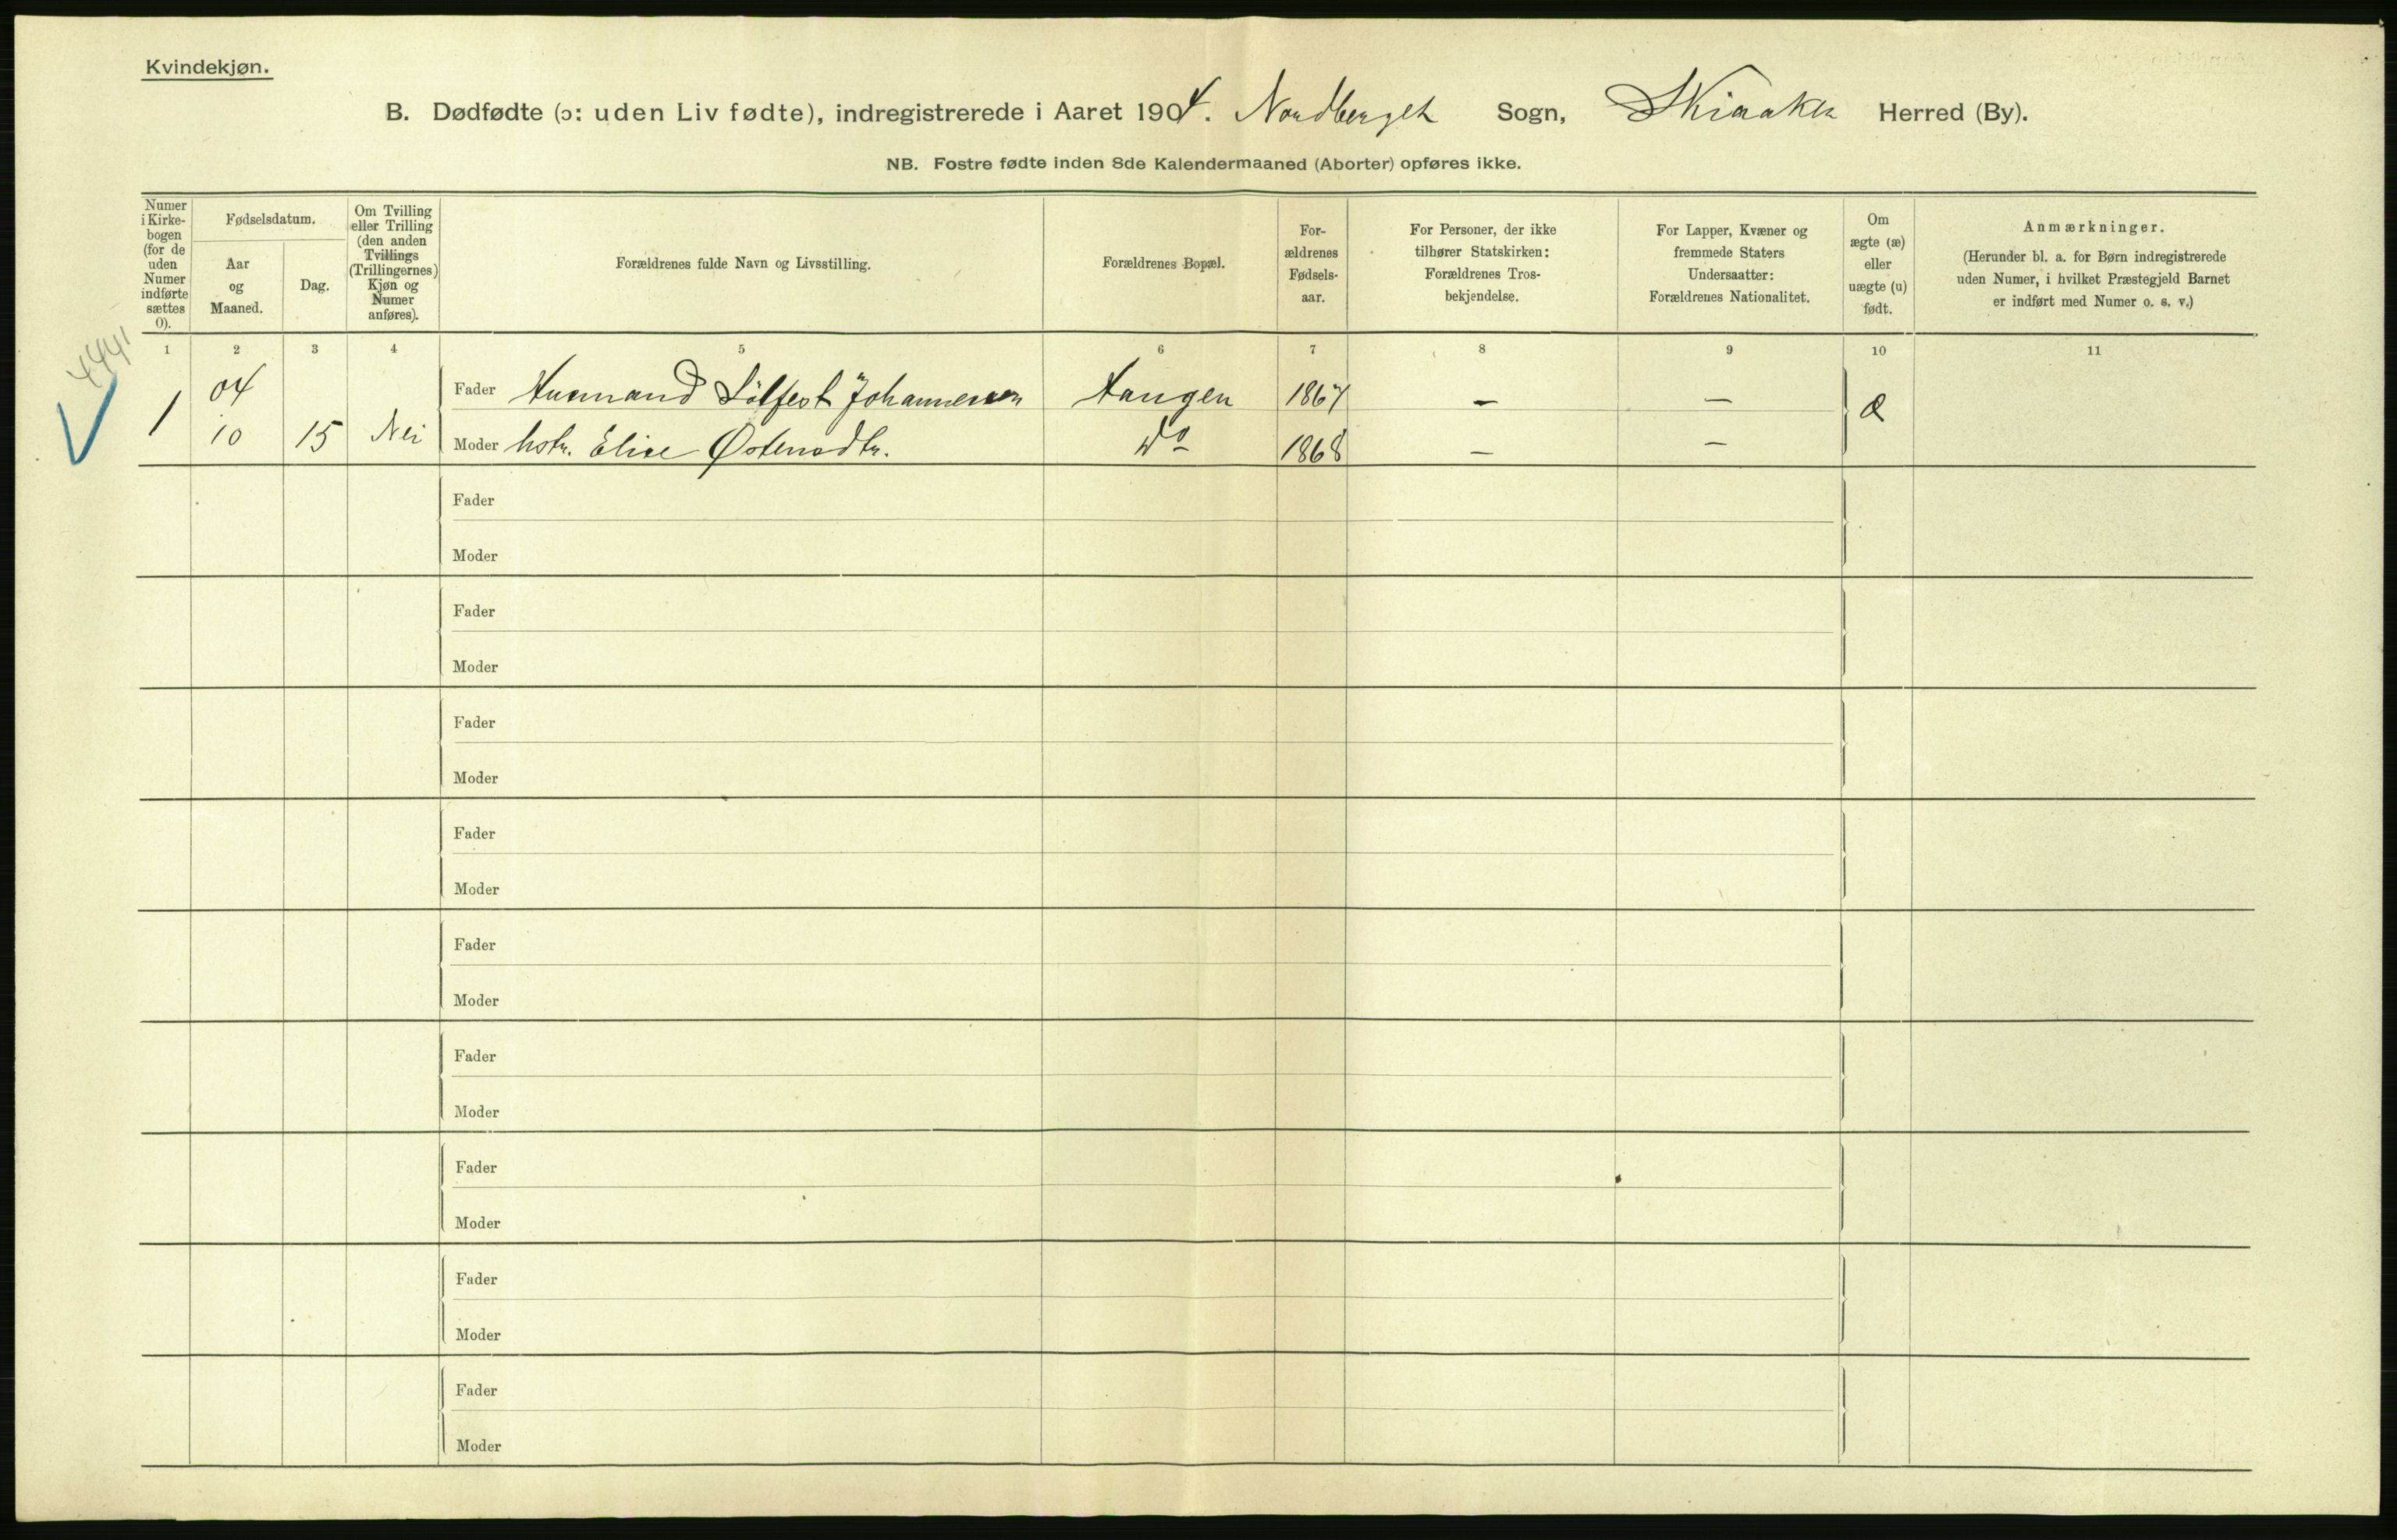 Kvindekjøn.
B. Dødfødte (ɔ: uden Liv fødte), indregistrerede i Aaret 1904. Nordberget Sogn, Skiaaker Herred (By).
NB. Fostre fødte inden 8de Kalendermaaned (Aborter) opføres ikke.
Numer
i Kirke-
bogen
(for de
uden
Numer
indførte
sættes
0).
Fødselsdatum.
Aar
og
Maaned.
Dag.
Om Tvilling
eller Trilling
(den anden
Tvillings
(Trillingernes)
Kjøn og
Numer
anføres).
Forældrenes fulde Navn og Livsstilling.
Forældrenes Bopæl.
For-
ældrenes
Fødsels-
aar.
For Personer, der ikke
tilhører Statskirken:
Forældrenes Tros-
bekjendelse.
For Lapper, Kvæner og
fremmede Staters
Undersaatter:
Forældrenes Nationalitet.
Om
ægte (æ)
eller
uægte (u)
født.
Anmærkninger.
(Herunder bl. a. for Børn indregistrerede
uden Numer, i hvilket Præstegjeld Barnet
er indført med Numer o. s. v.)
1 2 3 4 5 6 7 8 9 10 11
4441
04 Fader Husmand Sölfest Johannessen Haugen 1867 – – æ
1 10 15 Nei Moder hstr. Elise Østensdtr. do 1868 – –
Fader
Moder
Fader
Moder
Fader
Moder
Fader
Moder
Fader
Moder
Fader
Moder
Fader
Moder
Fader
Moder
Fader
Moder